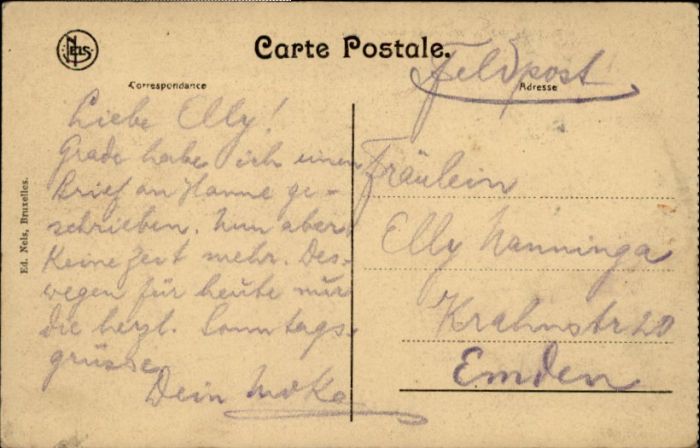 Nels
Carte Postale.
Correspondance
Adresse
Feldpost
Liebe Elly!
Grade habe ich einen
Brief an Hanne ge-
schrieben. Nun aber
keine Zeit mehr. Des-
wegen für heute nur
die herzl. Sonntags-
grüsse
Dein
Fräulein
Elly Nanninga
Krahnstr 20
Emden
Ed. Nels, Bruxelles.